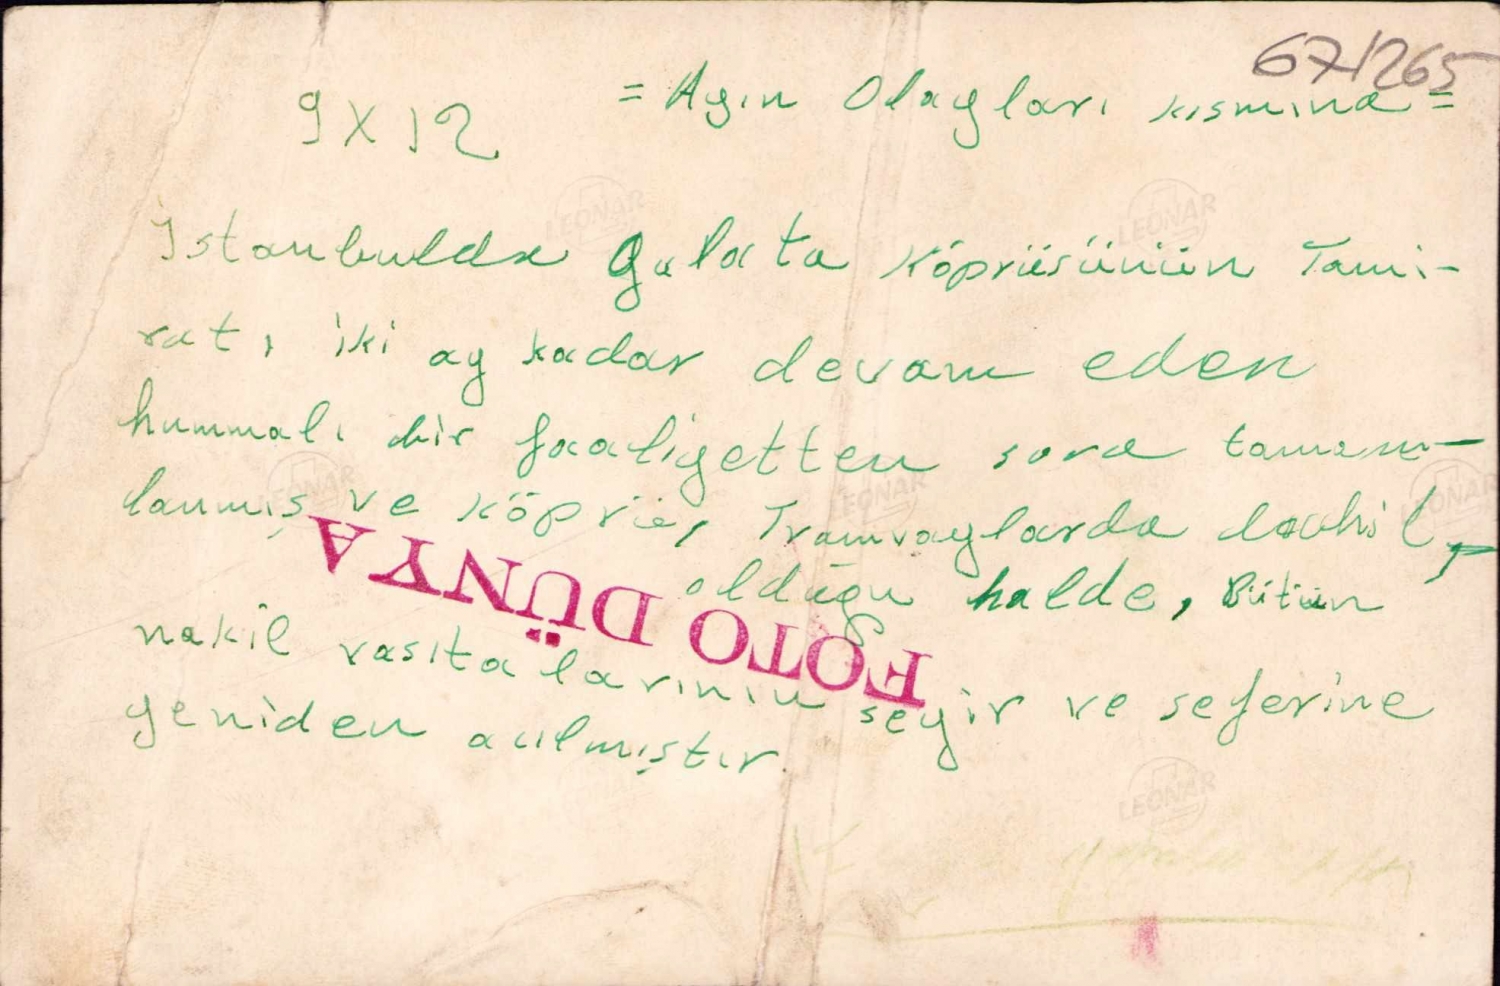 67/265
= Ayın Olayları kısmına =
9 X 12
İstanbulda Galata Köprüsünün Tami-
ratı, iki ay kadar devam eden
hummalı bir faaliyetten sora tamam-
lanmış ve Köprü, Tramvaylarda dahil,
olduğu halde, Bütün
nakil vasıtalarının seyir ve seferine
yeniden acılmıştır.
FOTO DÜNYA
LEONAR
LEONAR
LEONAR
LEONAR
LEONAR
LEONAR